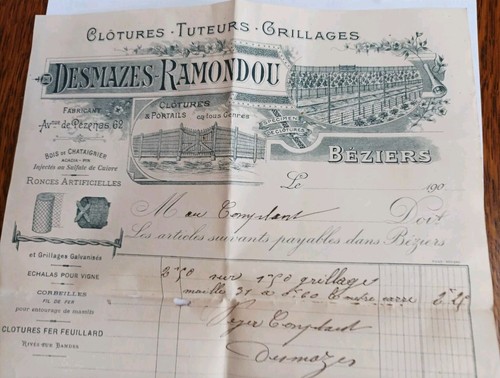 CLÔTURES · TUTEURS · GRILLAGES
DESMAZES-RAMONDOU
FABRICANT
Avnue de Pézenas 62
CLÔTURES
& PORTAILS en tous Genres
SPECIMEN
DE CLOTURES
BÉZIERS
BOIS DE CHATAIGNIER
ACACIA - PIN
Injectés au Sulfate de Cuivre
RONCES ARTIFICIELLES
Le 190
M au Comptant Doit
Les articles suivants payables dans Béziers
et Grillages Galvanisés
ECHALAS POUR VIGNE
CORBEILLES
FIL DE FER
pour entourage de massifs
CLOTURES FER FEUILLARD
RIVES SUR BANDES
2m50 sur 1m50 grillage
maille 31 à 0.60 carré 2.25
Payer Comptant
Desmazes